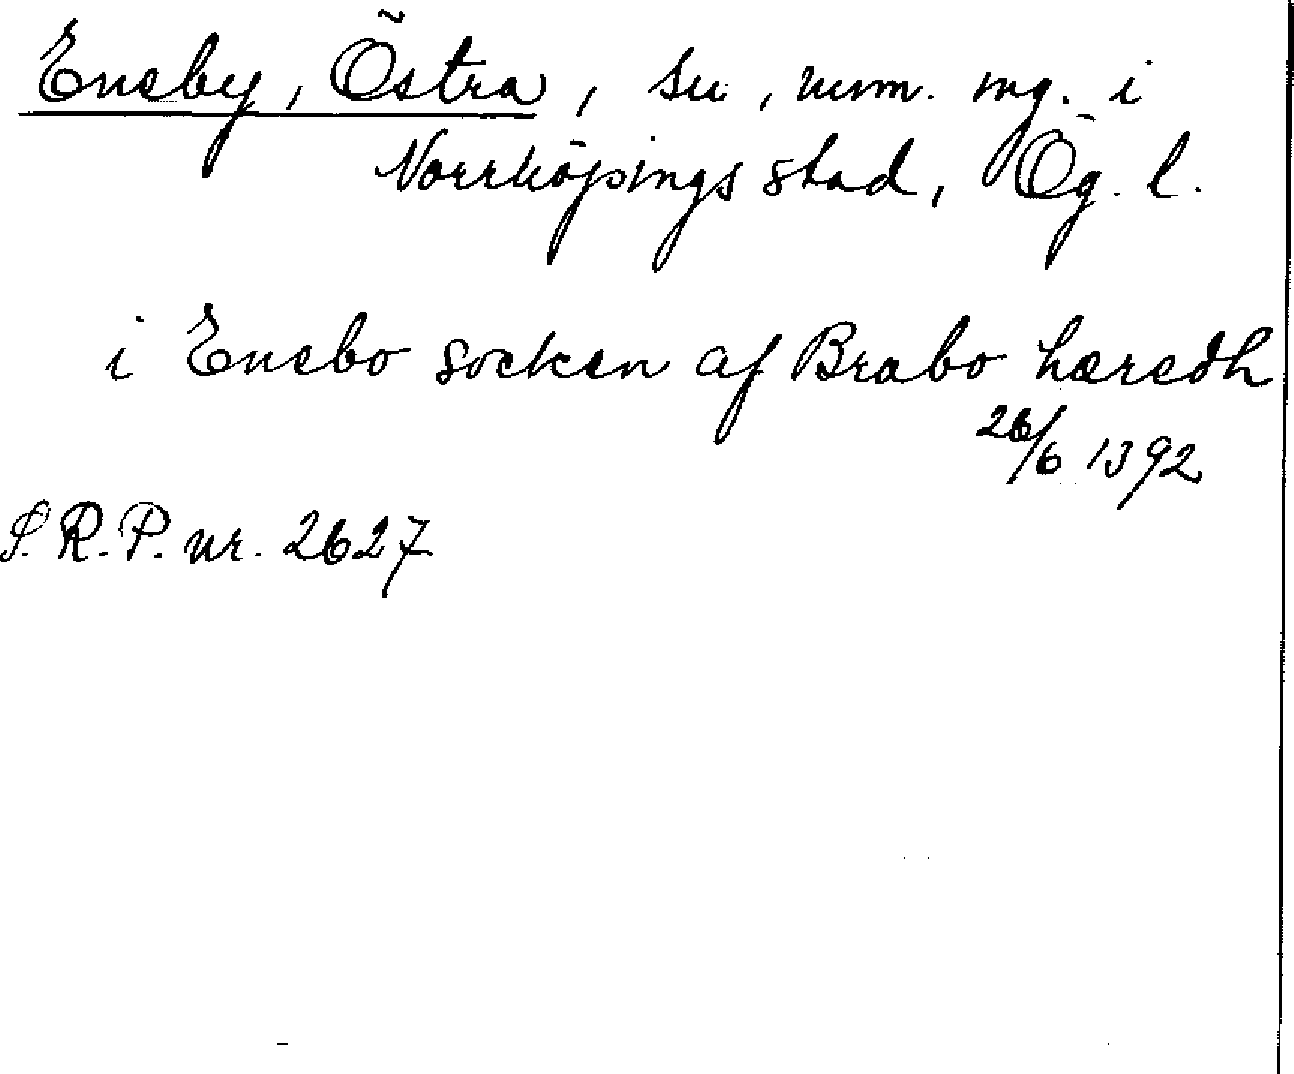 Eneby, Östra, sn, num. mg. i
Norrköpings stad, Ög. l.
i Enebo socken af Brabo hæredh
26/6 1392
S.R.P. nr. 2627